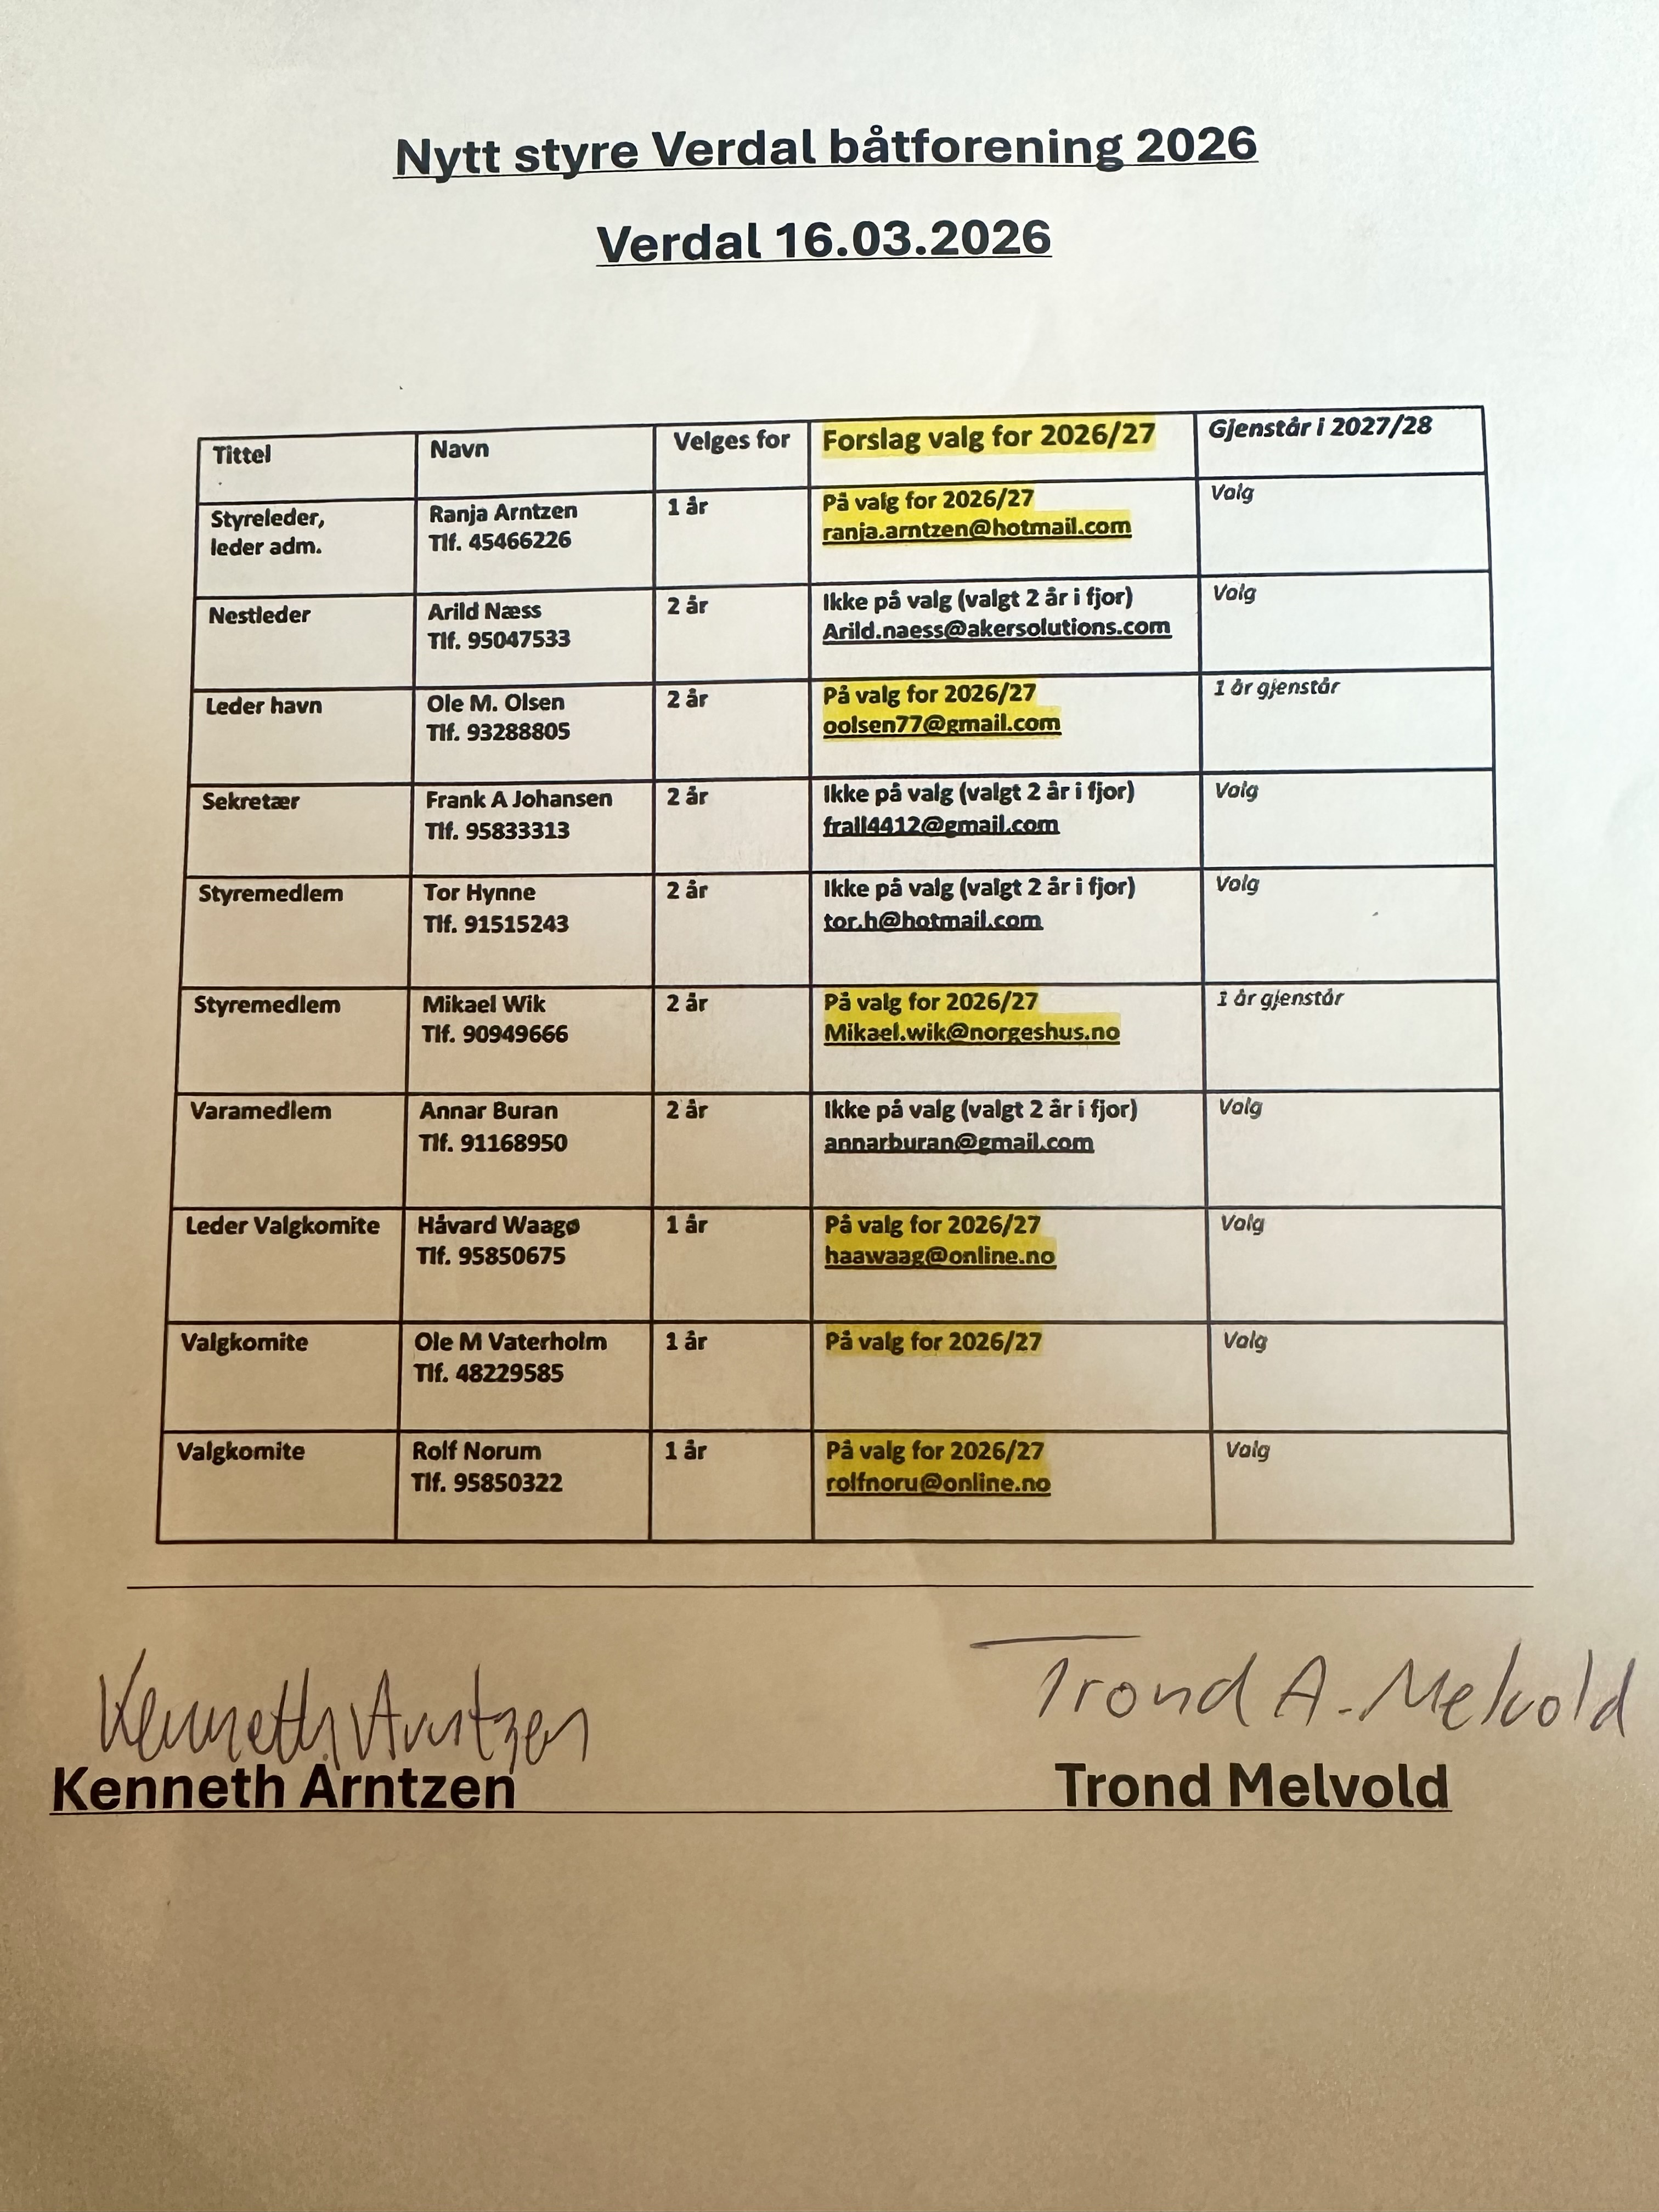 Nytt styre Verdal båtforening 2026
Verdal 16.03.2026
Tittel Navn Velges for Forslag valg for 2026/27 Gjenstår i 2027/28
Styreleder, Ranja Arntzen 1 år På valg for 2026/27 Valg
leder adm. Tlf. 45466226 ranja.arntzen@hotmail.com
Nestleder Arild Næss 2 år Ikke på valg (valgt 2 år i fjor) Valg
Tlf. 95047533 Arild.naess@akersolutions.com
Leder havn Ole M. Olsen 2 år På valg for 2026/27 1 år gjenstår
Tlf. 93288805 oolsen77@gmail.com
Sekretær Frank A Johansen 2 år Ikke på valg (valgt 2 år i fjor) Valg
Tlf. 95833313 frall4412@gmail.com
Styremedlem Tor Hynne 2 år Ikke på valg (valgt 2 år i fjor) Valg
Tlf. 91515243 tor.h@hotmail.com
Styremedlem Mikael Wik 2 år På valg for 2026/27 1 år gjenstår
Tlf. 90949666 Mikael.wik@norgeshus.no
Varamedlem Annar Buran 2 år Ikke på valg (valgt 2 år i fjor) Valg
Tlf. 91168950 annarburan@gmail.com
Leder Valgkomite Håvard Waagø 1 år På valg for 2026/27 Valg
Tlf. 95850675 haawaag@online.no
Valgkomite Ole M Vaterholm 1 år På valg for 2026/27 Valg
Tlf. 48229585
Valgkomite Rolf Norum 1 år På valg for 2026/27 Valg
Tlf. 95850322 rolfnoru@online.no
Kenneth Arntzen Trond A. Melvold
Kenneth Arntzen Trond Melvold